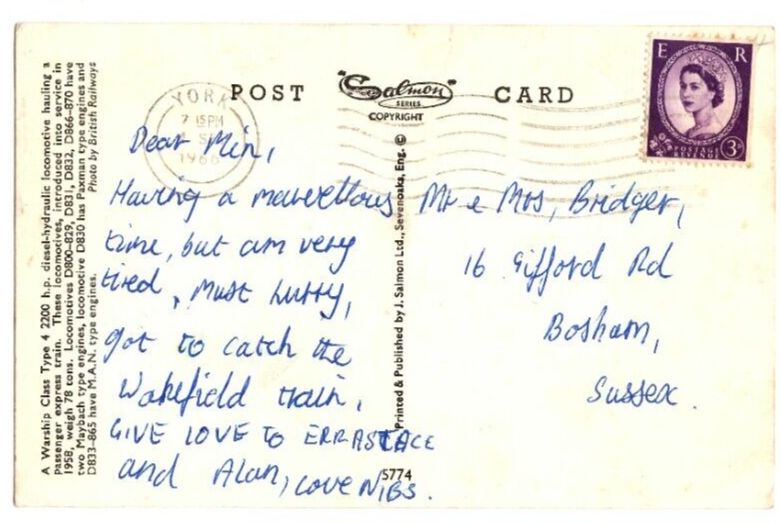 A Warship Class Type 4 2200 h.p. diesel-hydraulic locomotive hauling a
passenger express train. These locomotives, introduced into service in
1958, weigh 78 tons. Locomotives D800–829, D831, D832, D866–870 have
two Maybach type engines, locomotive D830 has Paxman type engines and
D833–865 have M.A.N. type engines.
Photo by British Railways
POST CARD
"Salmon"
SERIES
COPYRIGHT ©
YORK
7 15 PM
1966
E R
POSTAGE
REVENUE
3D
Dear Min,
Having a marvellous
time, but am very
tired, Must hurry,
got to catch the
Wakefield train,
GIVE LOVE TO
and Alan, love NIBS.
Printed & Published by J. Salmon Ltd., Sevenoaks, Eng.
5774
Mr & Mrs, Bridger,
16 Gifford Rd
Bosham,
Sussex.